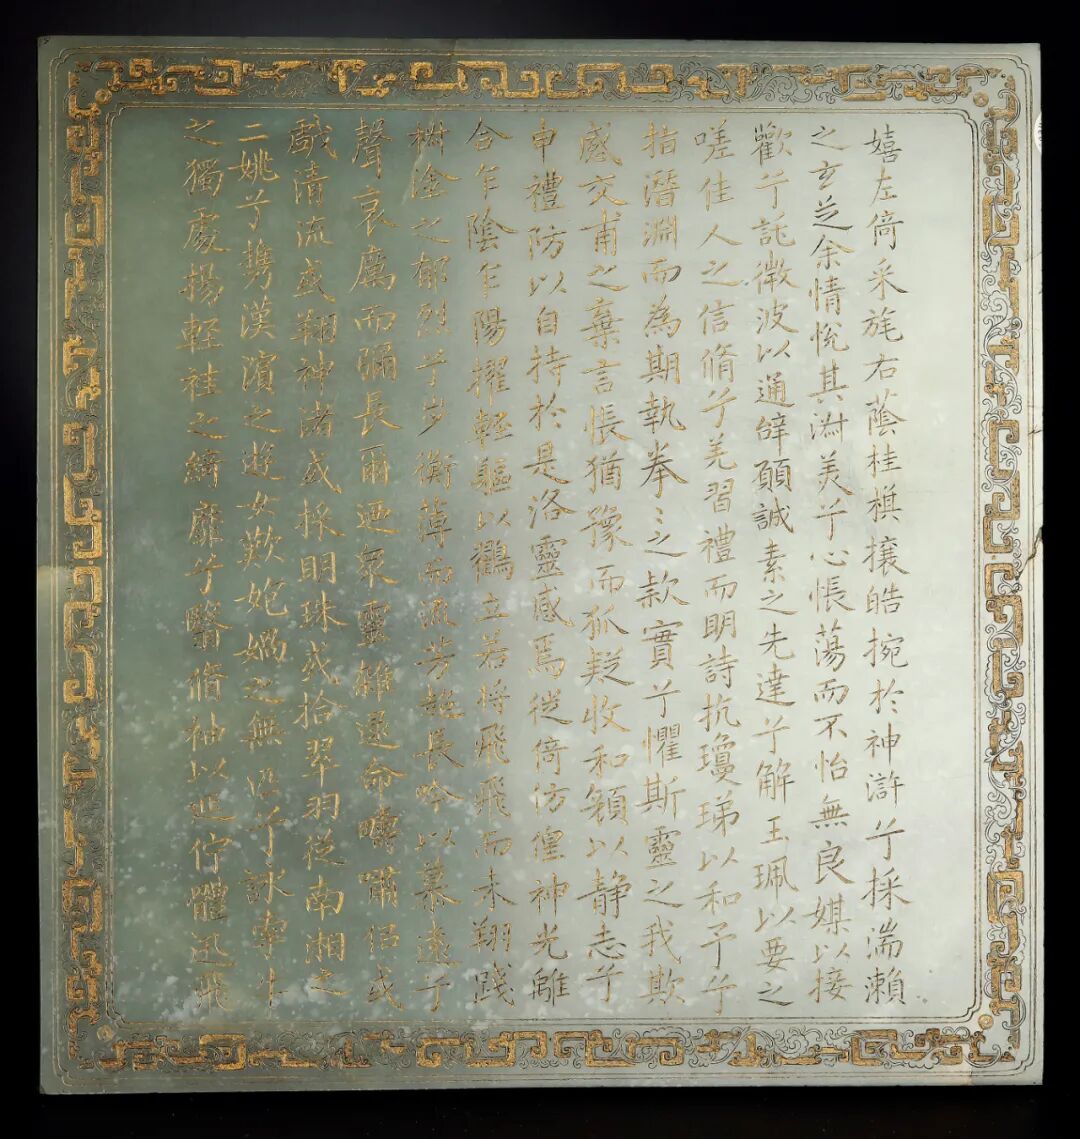 嬉左倚采旄右蔭桂棋攘皓捥於神滸兮採湍瀨
之玄芝余情悅其淑美兮心悵蕩而不怡無良媒以接
歡兮託微波以通辭願誠素之先達兮解玉珮以要之
嗟佳人之信脩兮羌習禮而明詩抗瓊珶以和予兮
指潛淵而為期執拳〻之款實兮懼斯靈之我欺
感交甫之棄言悵猶豫而狐疑收和顏以靜志兮
申禮防以自持於是洛靈感焉徙倚仿偟神光離
合乍陰乍陽擢輕軀以鶴立若將飛而未翔踐
椒塗之郁烈兮步衡薄而流芳超長吟以慕遠兮
聲哀厲而彌長爾迺衆靈雜遝命疇嘯侶或
戲清流或翔神渚或採明珠或拾翠羽從南湘之
二姚兮攜漢濱之遊女歎匏媧之無匹兮詠牽牛
之獨處揚輕袿之綺靡兮翳脩袖以延佇體迅飛